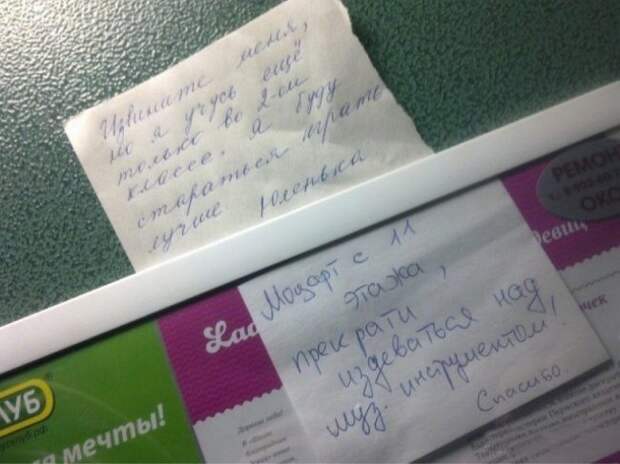 Извините меня,
но я учусь ещё
только во 2-ом
классе. я буду
стараться играть
лучше Юленька
РЕМОН
ОКО
Моцарт с 11
этажа,
прекрати
издеваться над
муз. инструментом!
Спасибо.
Lad
девиц
чек
УБ
я мечты!